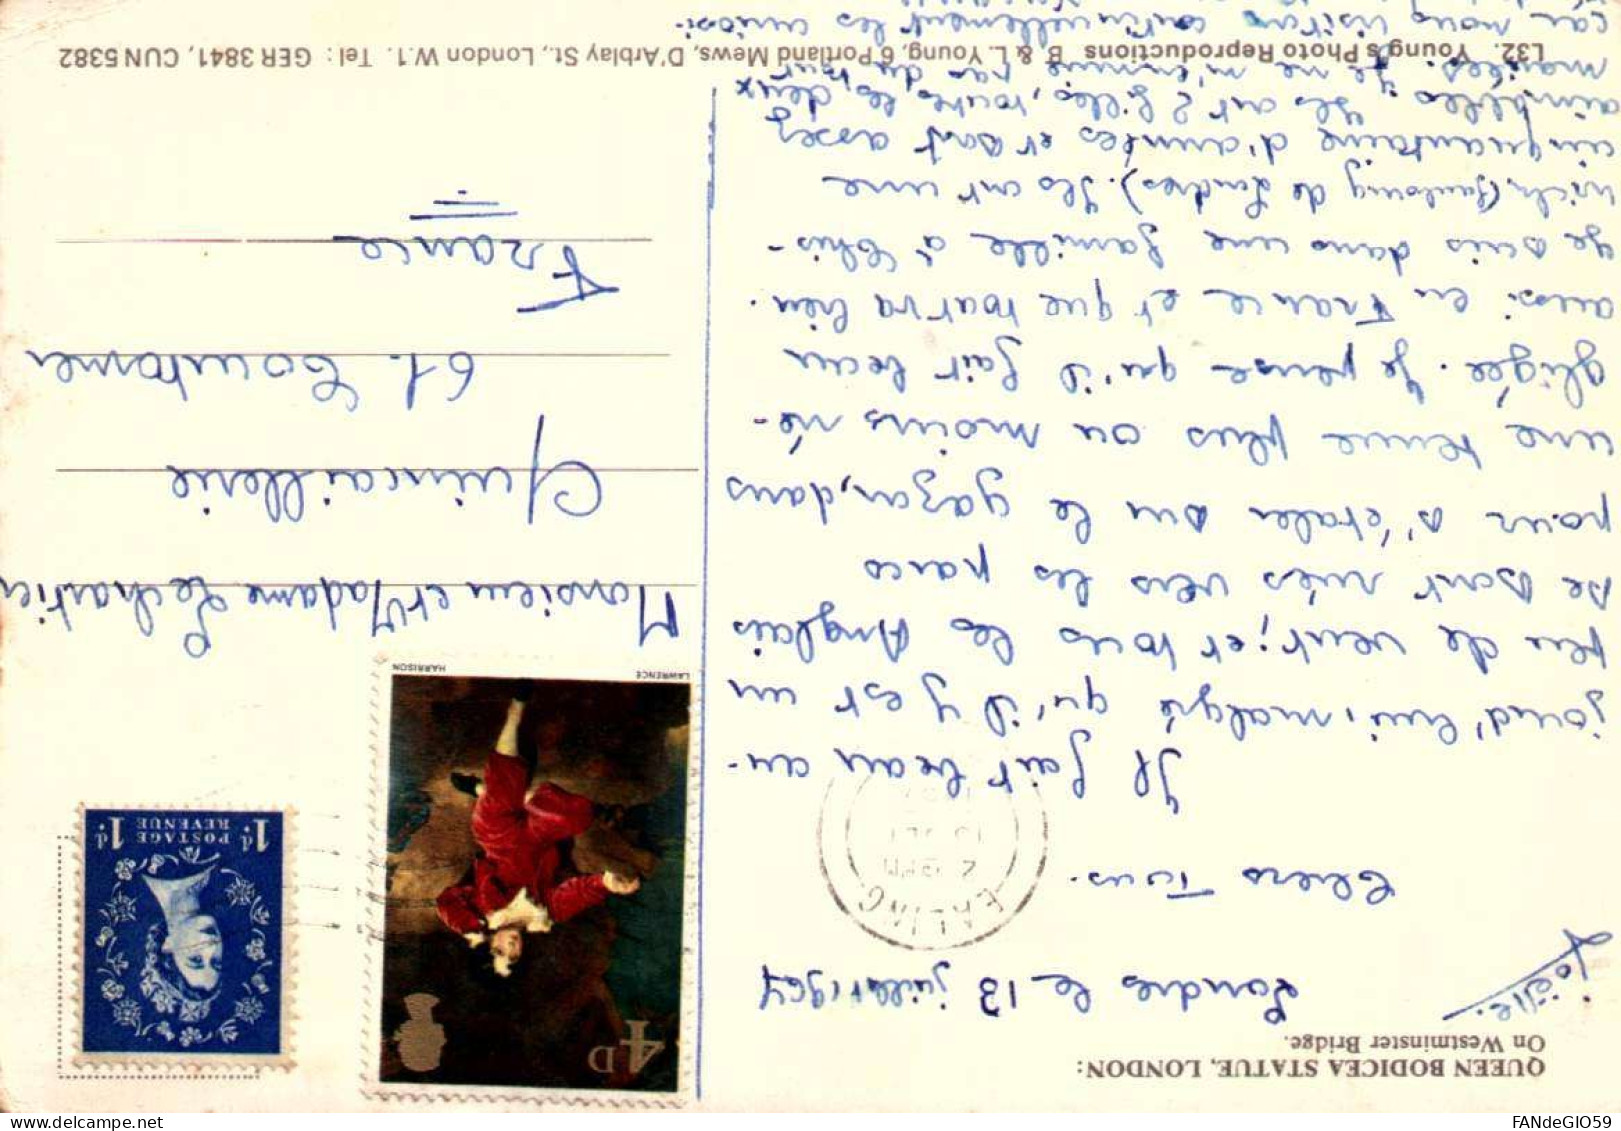 QUEEN BODICEA STATUE, LONDON:
On Westminster Bridge.
Joëlle.
Londres le 13 juillet 1967
Chers Tous.
Il fait beau au-
jourd'hui, malgré qu'il y est un
peu de vent; et tous les Anglais
se sont rués vers les parcs
pour s'étaler sur le gazon, dans
une tenue plus ou moins né-
gligée. Je pense qu'il fait beau
aussi en France et que tout va bien.
Je suis dans une famille à Chis-
wich (faubourg de Londres). Ils ont une
cinquantaine d'années et sont assez
aimables, Ils ont 2 filles, toutes les deux
mariées. Je ne m'ennuie pas du tout
car nous visitons continuellement les
EALING
4 PM
13 JLY
1967
4D
LAWRENCE
HARRISON
1d. POSTAGE REVENUE 1d.
Monsieur et Madame Lechartier
Quincaillerie
61. Courtomer
France
L32. Young's Photo Reproductions B & L. Young, 6 Portland Mews, D'Arblay St., London W.1. Tel: GER 3841, CUN 5382
FANdeGIO59